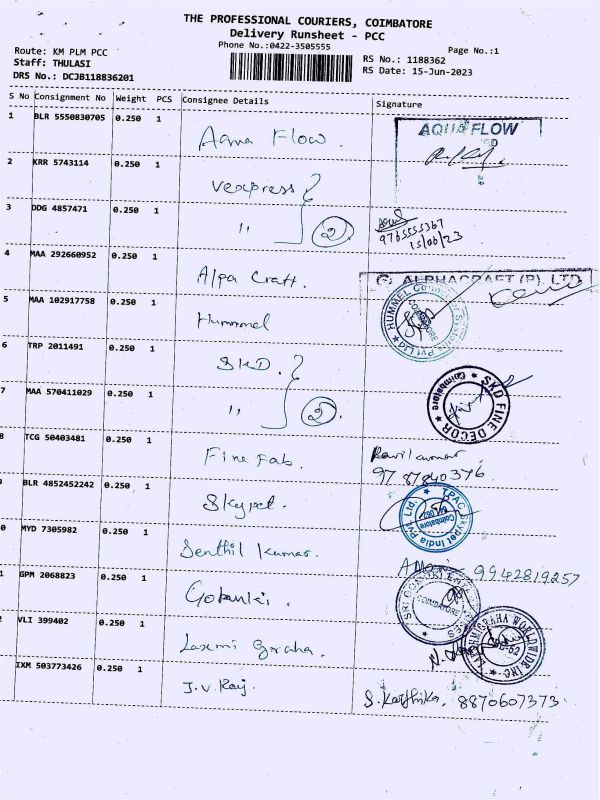 THE PROFESSIONAL COURIERS, COIMBATORE
Delivery Runsheet - PCC
Phone No.:0422-3505555
Page No.:1
Route: KM PLM PCC
Staff: THULASI
DRS No.: DCJB118836201
RS No.: 1188362
RS Date: 15-Jun-2023
S No Consignment No Weight PCS Consignee Details Signature
1 BLR 5550830705 0.250 1 Aqua Flow. AQUA FLOW
2 KRR 5743114 0.250 1 Vexpress
3 DDG 4857471 0.250 1 " 2
9765555367
15/06/23
4 MAA 292660952 0.250 1 Alpa Craft. ALPHACRAFT (P) LTD
5 MAA 102917758 0.250 1 Hummel HUMMEL Pvt Ltd COIMBATORE
6 TRP 2011491 0.250 1 SKD.
7 MAA 570411029 0.250 1 " 2. SKD FINE DECOR Coimbatore
8 TCG 50403481 0.250 1 Fine Fab. Ravikumar
97 87840376
BLR 4852452242 0.250 1 Skypet. TPAC Skypet India Pvt Ltd. Coimbatore
0 MYD 7305982 0.250 1 Senthil Kumar. 9942819257
1 GPM 2068823 0.250 1 SRI COIMBATORE
2 VLI 399402 0.250 1 Laxmi Graha. LAKSHMIGRAHA WORLDWIDE INC
IXM 503773426 0.250 1 J.V. Raj. S. Karthika. 8870607373